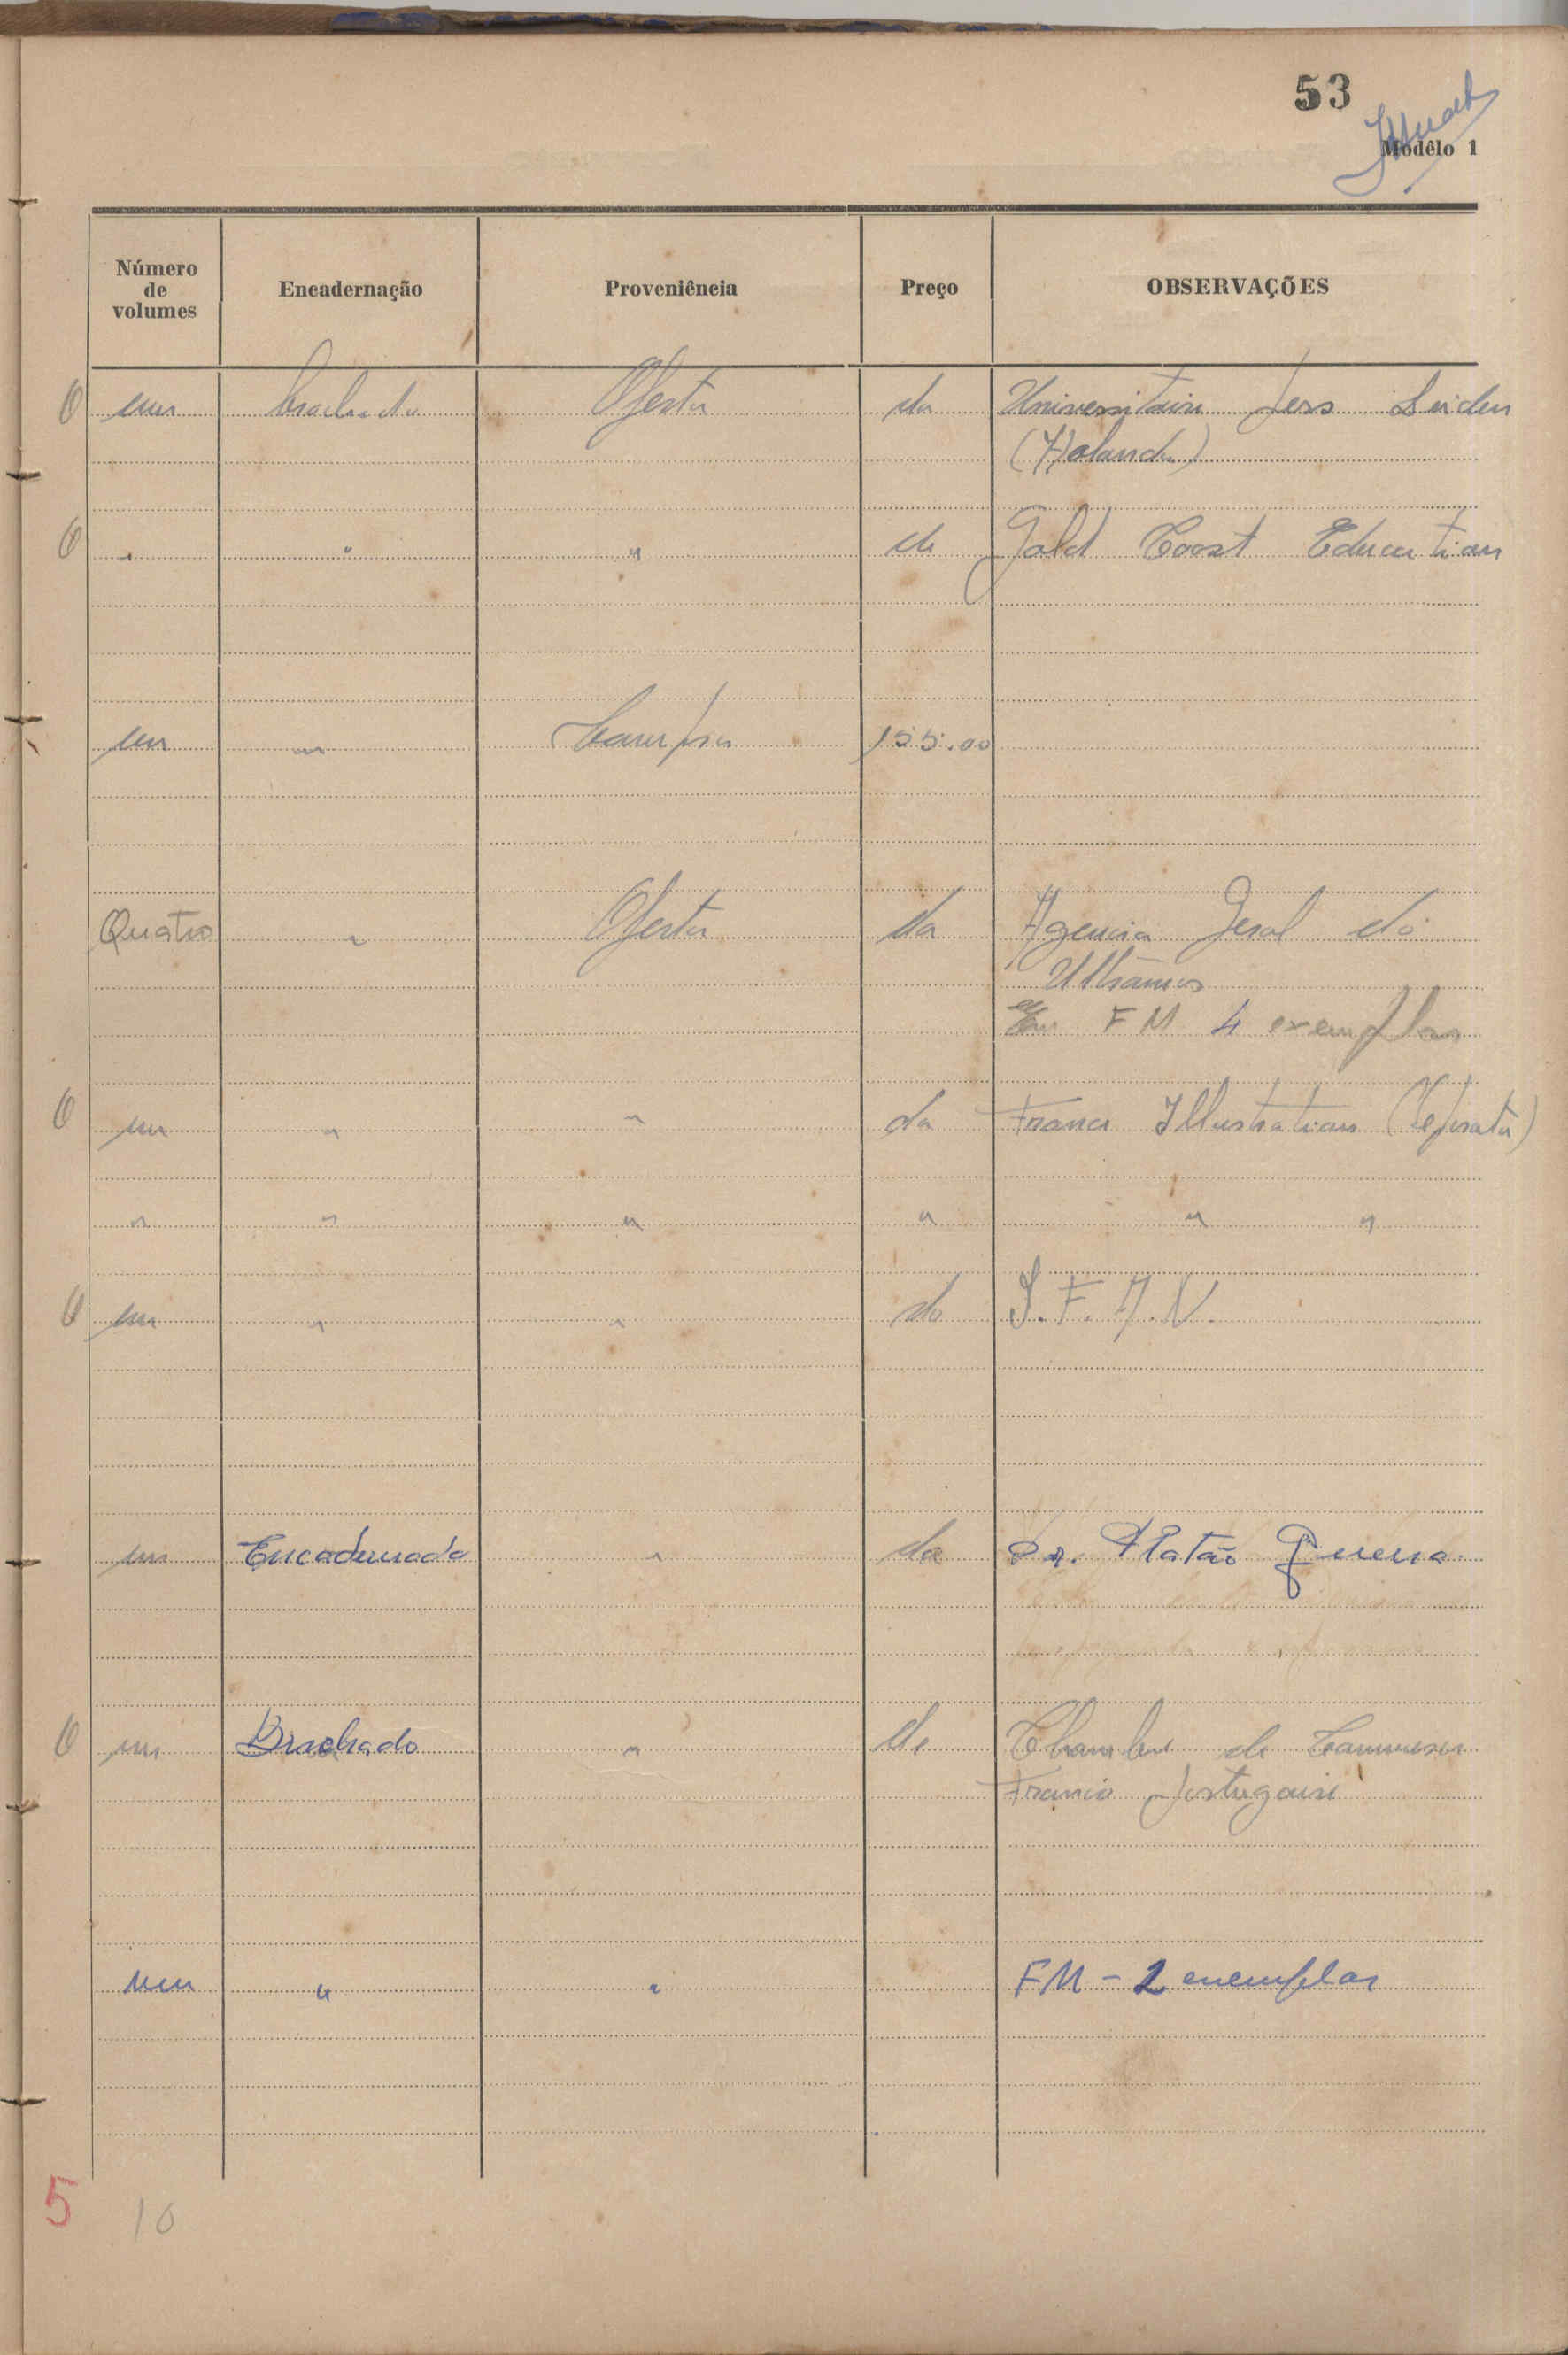 53
Modêlo 1
Número de volumes Encadernação Proveniência Preço OBSERVAÇÕES
um brochado Oferta da Universitaire Pers Leiden
(Holanda)
" " " de Gold Coast Education
um " Compra 155.00
Quatro " Oferta da Agencia Geral do
Ultramar
Em FM 4 exemplar
um " " da France Illustration (Separata)
" " " " " "
um " " do I.F.A.N.
um Encadernado " do Dr. Platão Guerra
um Brochado " de Chambre de Commerce
Franco Portugaise
um " " FM - 2 exemplar
5 10